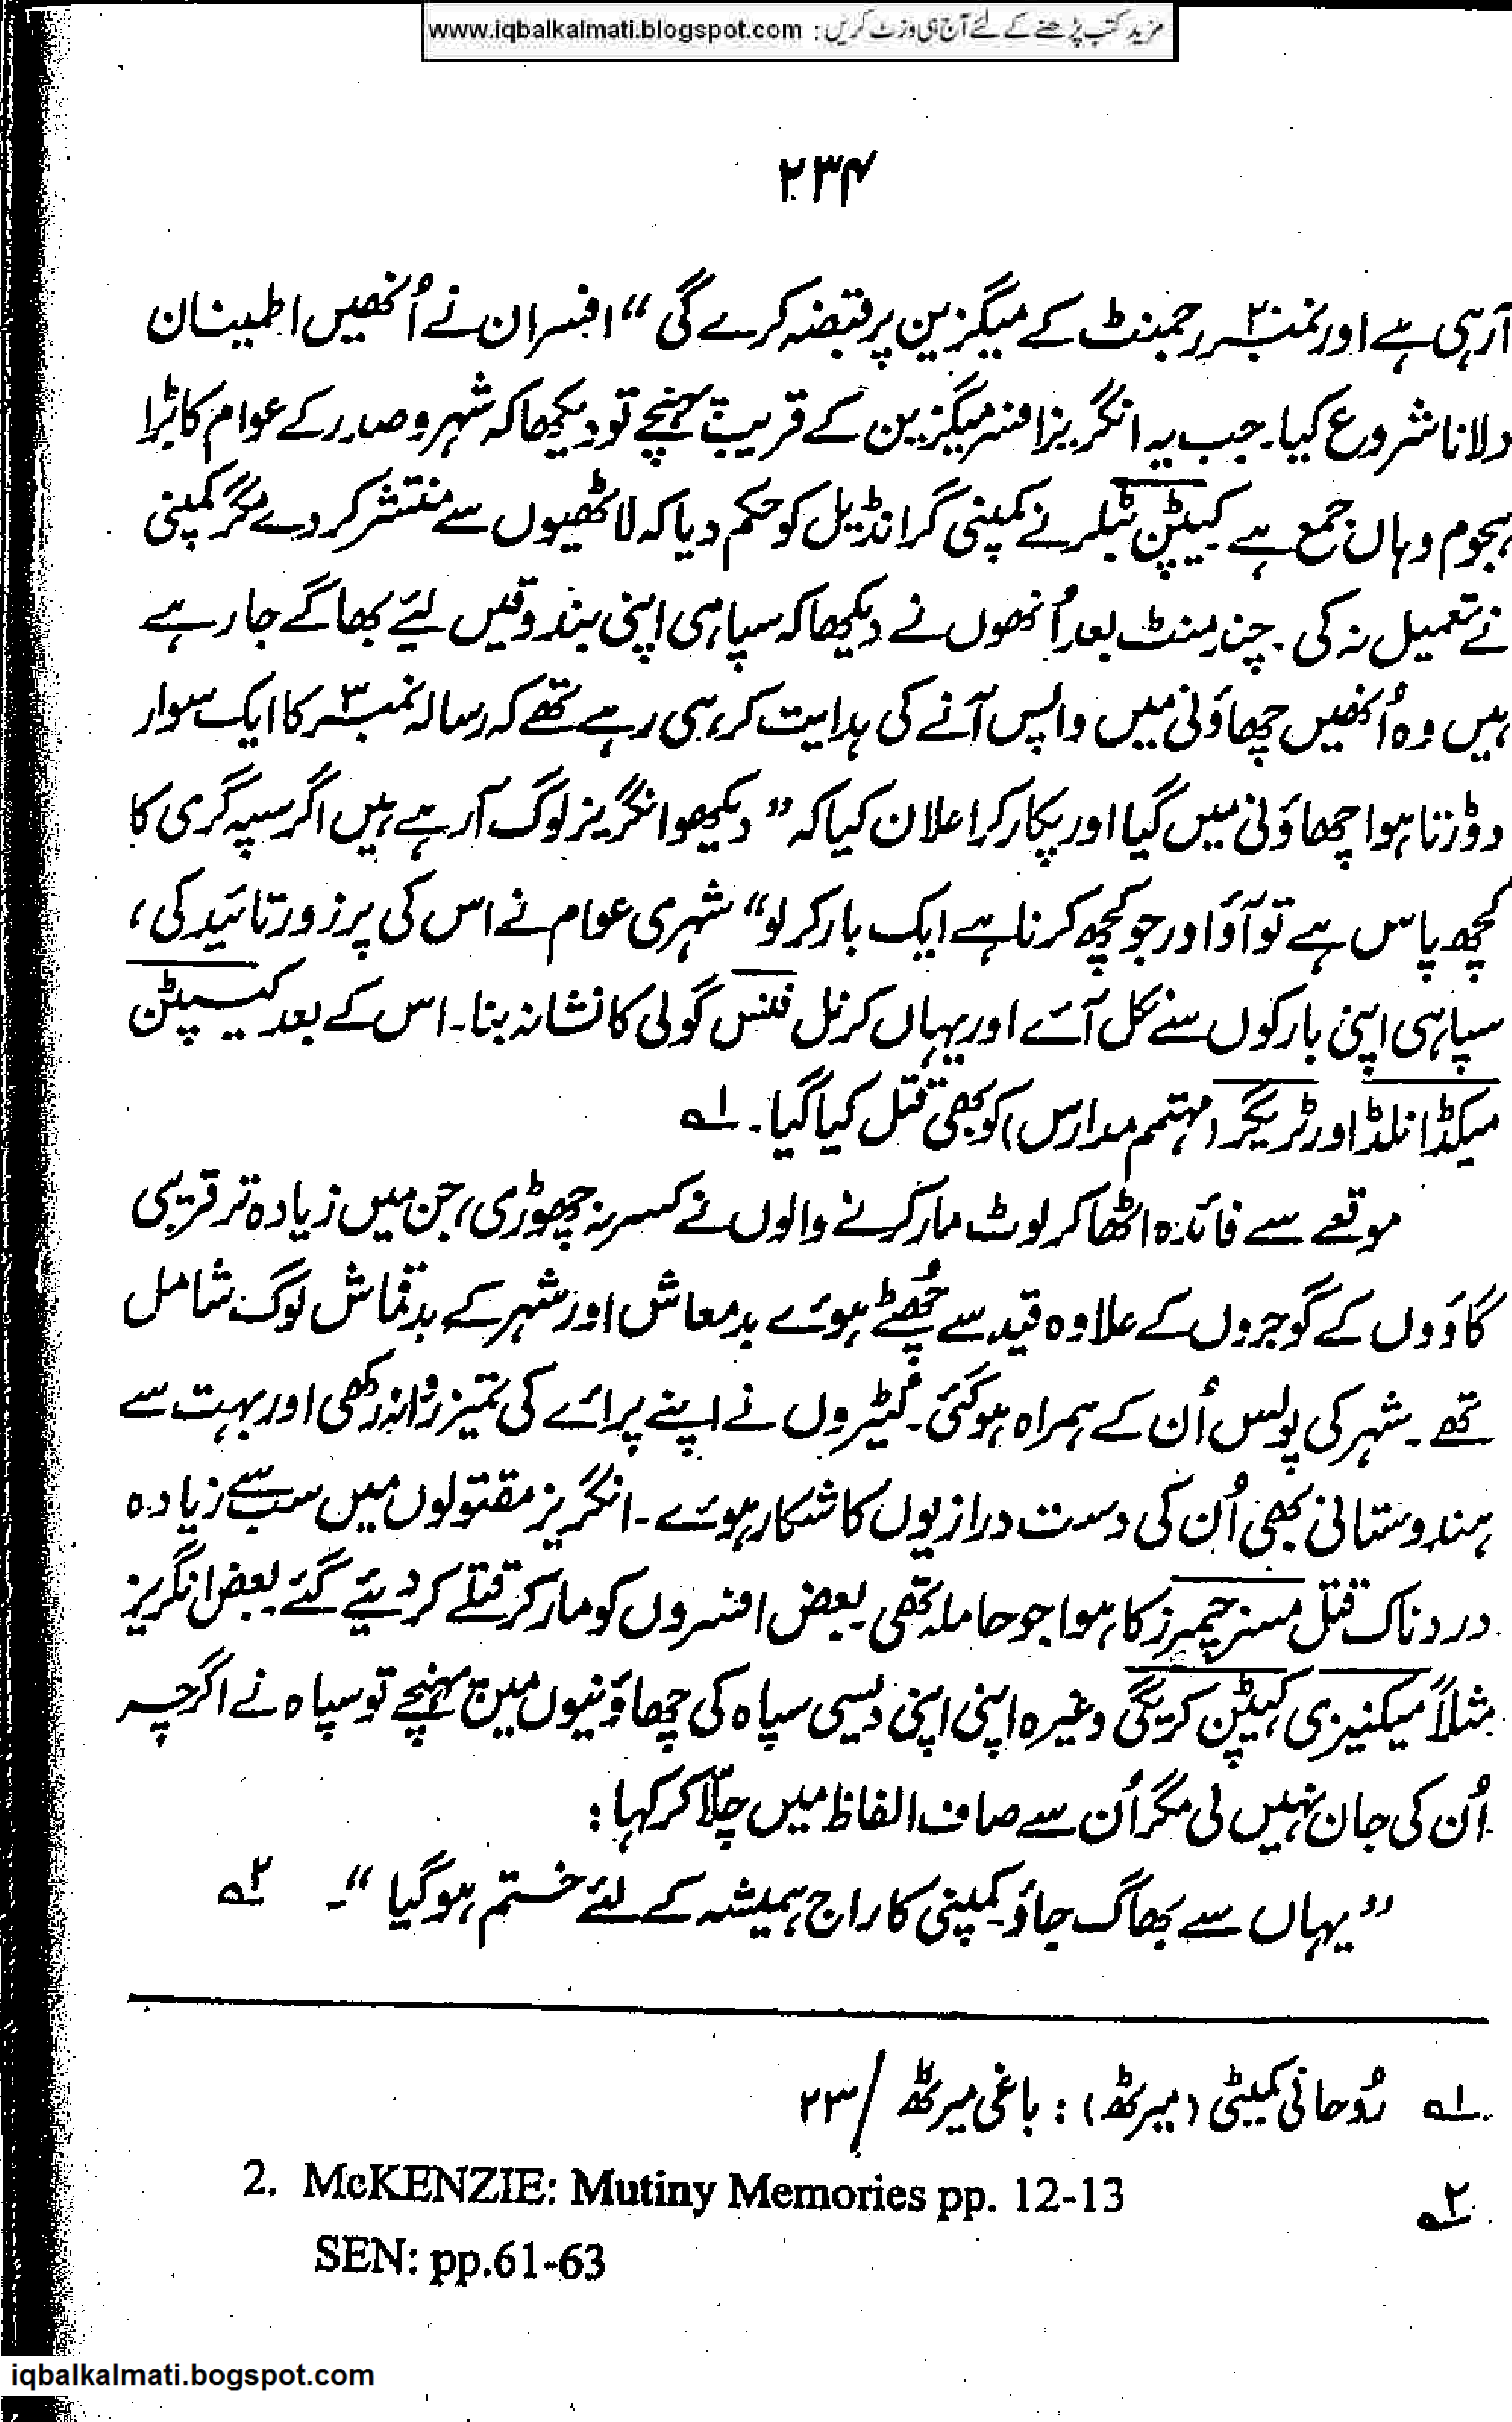 مزید کتب پڑھنے کے لئے آج ہی وزٹ کریں : www.iqbalkalmati.blogspot.com
۲۳۴
آرہی ہے اور نمبر۲ رجمنٹ کے میگزین پر قبضہ کرے گی “ افسران نے اُنھیں اطمینان
دلانا شروع کیا۔ جب یہ انگریز افسر میگزین کے قریب پہنچے تو دیکھا کہ شہر و صدر کے عوام کا بڑا
ہجوم وہاں جمع ہے کیپٹن ٹیلر نے کمپنی گرانڈیل کو حکم دیا کہ لاٹھیوں سے منتشر کردے مگر کمپنی
نے تعمیل نہ کی ۔ چند منٹ بعد اُنھوں نے دیکھا کہ سپاہی اپنی بندوقیں لیئے بھاگے جارہے
ہیں وہ اُنھیں چھاؤنی میں واپس آنے کی ہدایت کر ہی رہے تھے کہ رسالہ نمبر۳ کا ایک سوار
دوڑتا ہوا چھاؤنی میں گیا اور پکار کر اعلان کیا کہ ” دیکھو انگریز لوگ آرہے ہیں اگر سپہ گری کا
کچھ پاس ہے تو آؤ اور جو کچھ کرنا ہے ایک بار کر لو“ شہری عوام نے اس کی پر زور تائید کی ،
سپاہی اپنی بارکوں سے نکل آئے اور یہاں کرنل فنس گولی کا نشانہ بنا۔ اس کے بعد کیپٹن
میکڈانلڈ اور ٹریگر (مہتمم مدارس) کو بھی قتل کیا گیا۔ ۱ہ
موقعے سے فائدہ اٹھا کر لوٹ مار کرنے والوں نے کسر نہ چھوڑی، جن میں زیادہ تر قریبی
گاؤوں کے گوجروں کے علاوہ قید سے چُھٹے ہوئے بدمعاش اور شہر کے بدقماش لوگ شامل
تھے ۔ شہر کی پولس اُن کے ہمراہ ہوگئی۔ لُٹیروں نے اپنے پرائے کی تمیز روا نہ رکھی اور بہت سے
ہندوستانی بھی اُن کی دست درازیوں کا شکار ہوئے ۔ انگریز مقتولوں میں سب سے زیادہ
دردناک قتل مسز چیمبرز کا ہوا جو حاملہ تھی۔ بعض افسروں کو مار کر قتلے کر دیئے گئے بعض انگریز
مثلاً میکنیزی، کیپٹن کریگی وغیرہ اپنی اپنی دیسی سپاہ کی چھاؤنیوں میں پہنچے تو سپاہ نے اگرچہ
اُن کی جان نہیں لی مگر اُن سے صاف الفاظ میں چلّا کر کہا :
” یہاں سے بھاگ جاؤ۔ کمپنی کا راج ہمیشہ کے لئے ختم ہوگیا “۔ ۲ہ
۱ہ رُوحانی کمیٹی (میرٹھ) : باغی میرٹھ / ۲۳
۲ہ 2. McKENZIE: Mutiny Memories pp. 12-13
SEN: pp.61-63
iqbalkalmati.bogspot.com